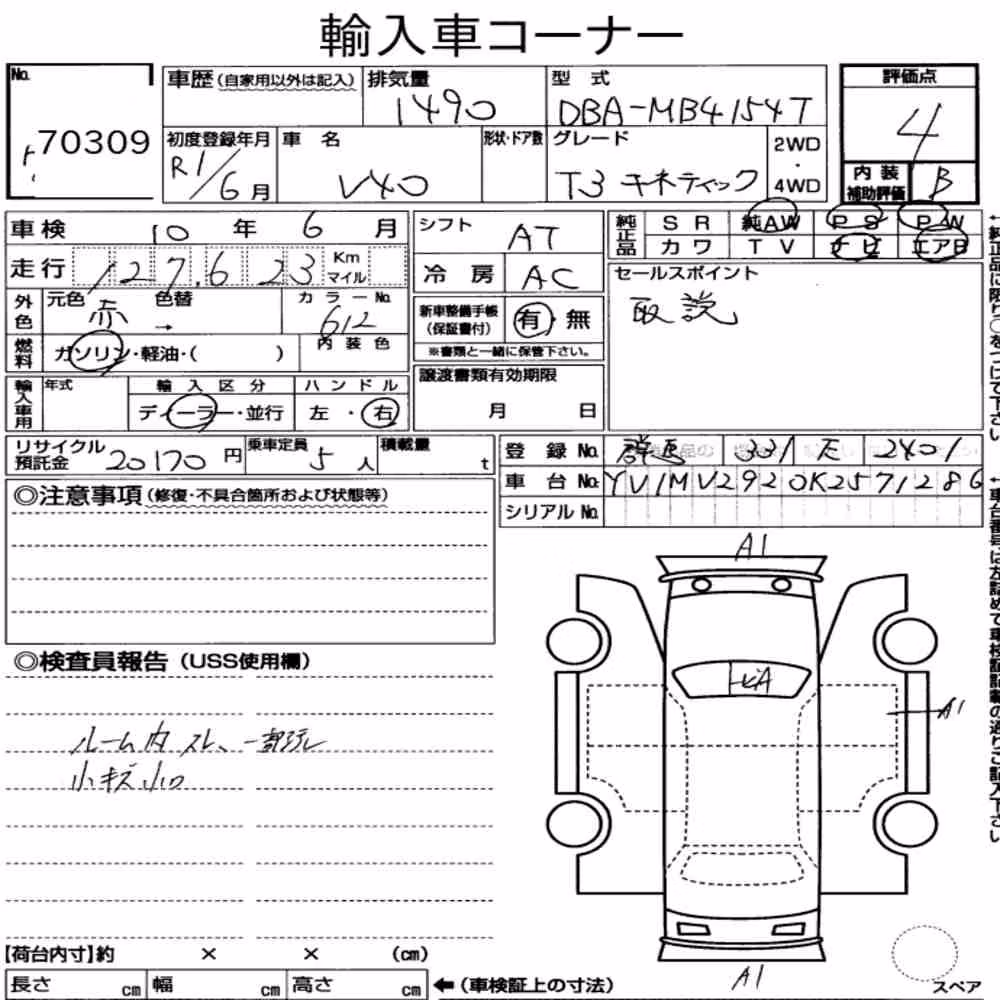 輸入車コーナー
No. 70309
車歴(自家用以外は記入) 排気量 1490 型式 DBA-MB4154T
評価点 4
初度登録年月 R1/6月 車名 V40 形状・ドア数 グレード T3 キネティック 2WD・4WD
内装補助評価 B
車検 10年 6月 シフト AT
純正品 SR 純AW PS PW
カワ TV ナビ エアB
走行 127,623 Km マイル 冷房 AC
セールスポイント
取説
外色 元色 赤 色替 → カラーNo. 612
新車整備手帳(保証書付) 有・無
※書類と一緒に保管下さい。
燃料 ガソリン・軽油・( ) 内装色
譲渡書類有効期限
月 日
輸入車用 年式 輸入区分 ディーラー・並行 ハンドル 左・右
リサイクル預託金 20170円 乗車定員 5人 積載量 t
登録No. 群馬 331 2401
車台No. YV1MV2920K2571286
シリアルNo.
◎注意事項(修復・不具合箇所および状態等)
A1
◎検査員報告(USS使用欄)
A1
ルーム内スレ、一部汚レ
小キズ小凹
A1
【荷台内寸】約 × × (cm)
長さ cm 幅 cm 高さ cm ←(車検証上の寸法)
スペア
←純正品に限り○をつけて下さい